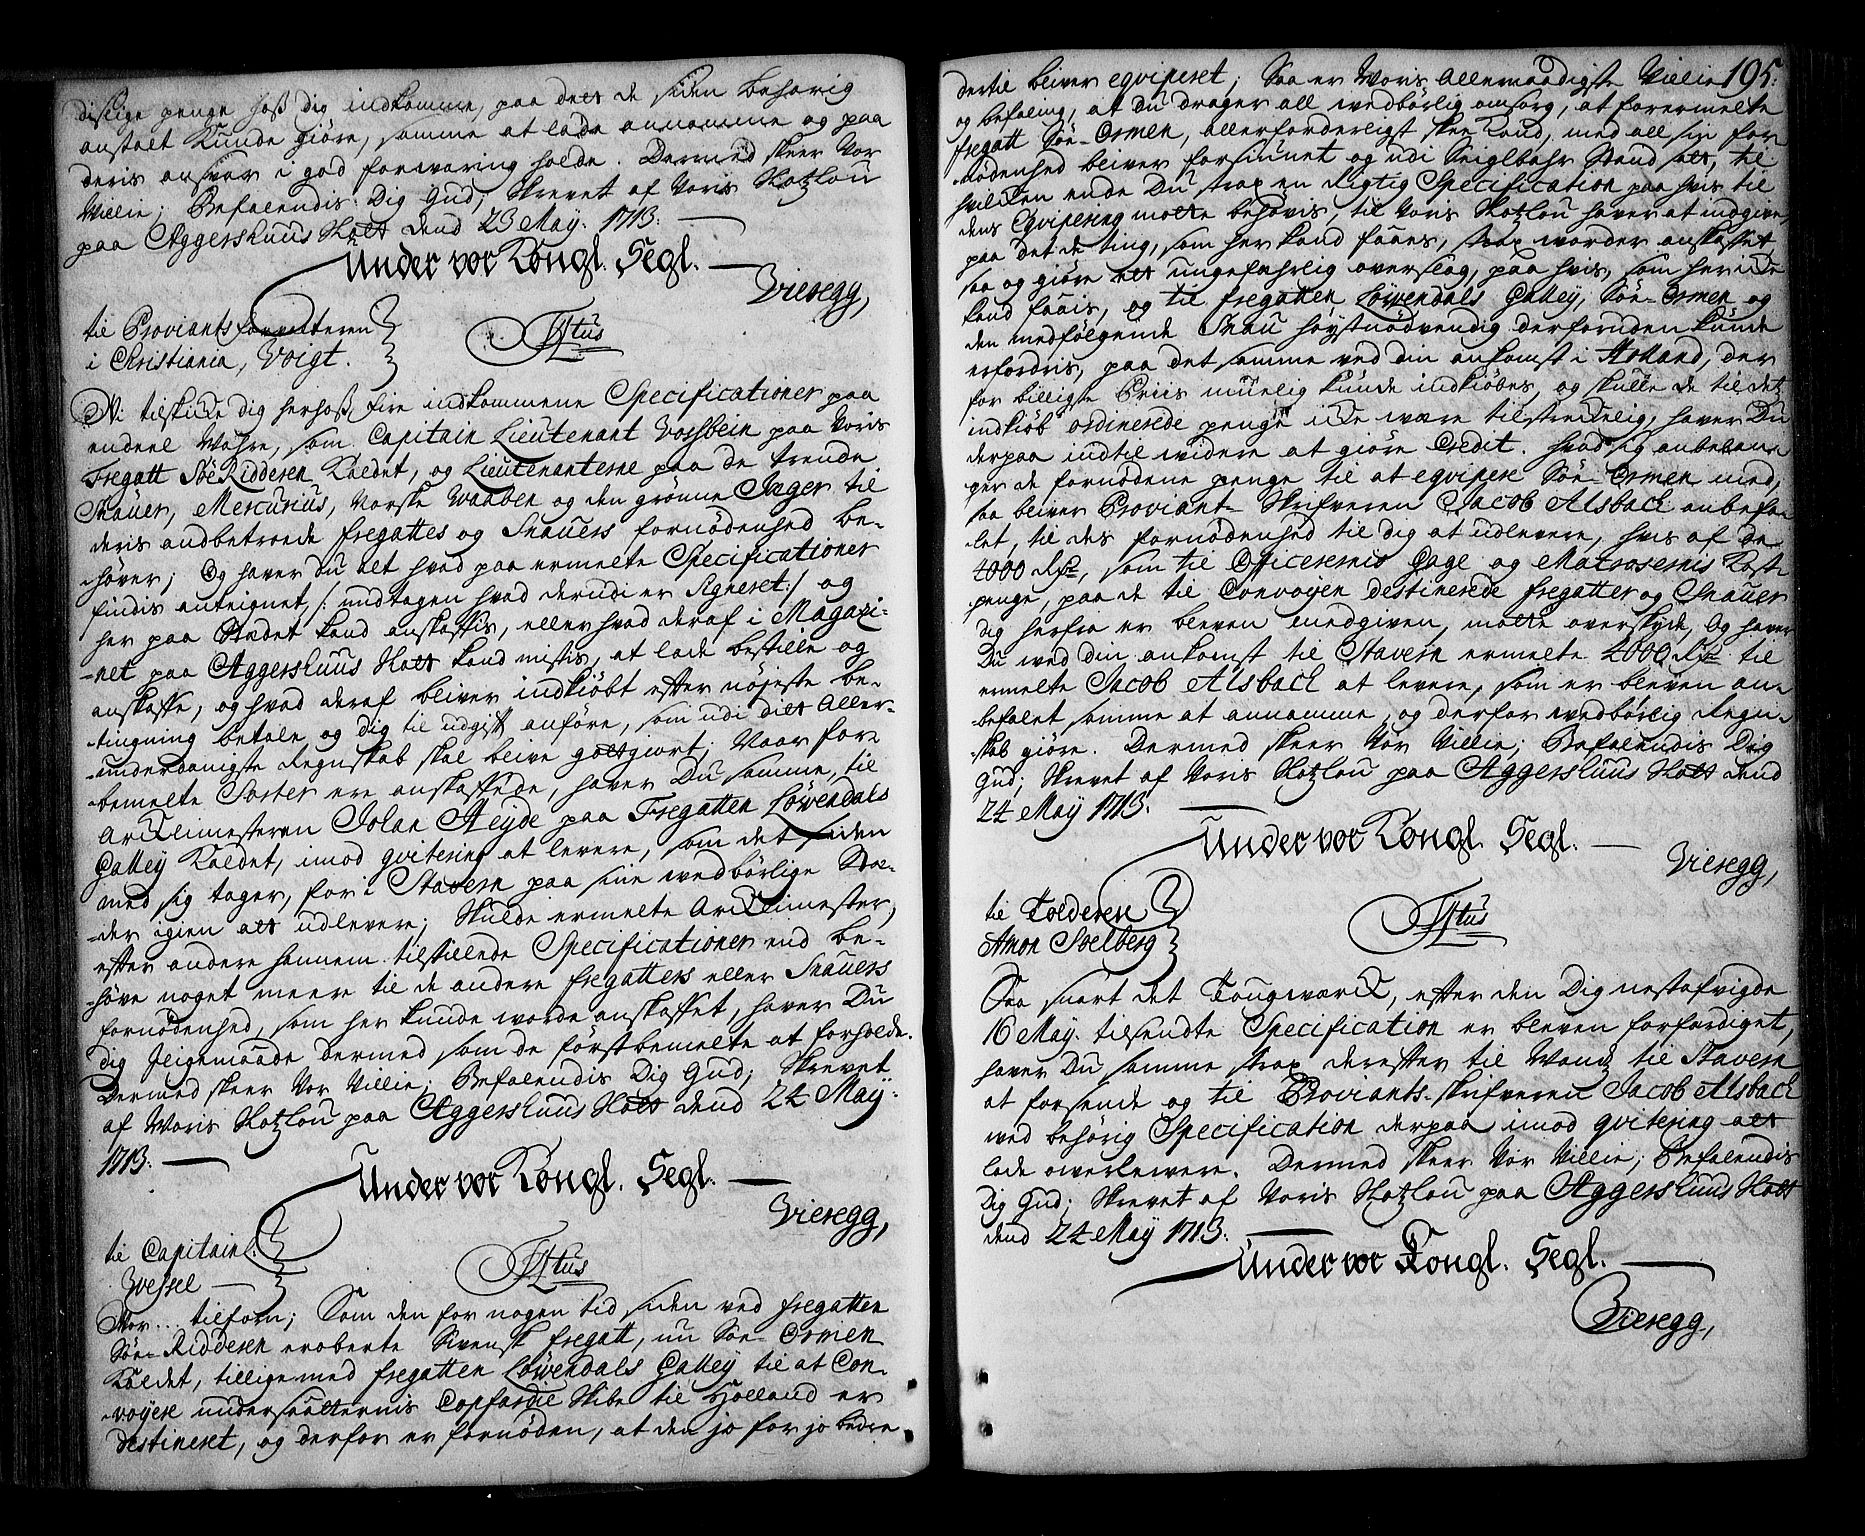 dislige penge hoß dig indkomme, paa det de siden behørig
anstalt kunde giøre, samme at lade annamme og paa
deris ansvar i god forwaring holde. Dermed skeer Vor
Villie; Befalendis Dig Gud; Skrevet af Voris Slotzlou
paa Aggershuus Slott dend 23 May. 1713.
Under vor Kongl. Segl.
Vieregg,
til Proviantsforvalteren
i Christiania, Voigt.
FR4tus
Wi tilskicke dig herhoß fire indkommene Specificationer paa
endeel Wahre, som Capitain Lieutenant Vosbein paa Voris
Fregatt Søe Ridderen kaldet, og Lieutenanterne paa de trende
Snauer, Mercurius, Norske Waaben og den grønne Jæger til
deris andbetroede fregattes og Snauers fornødenhed be-
høver; Og haver Du alt hvad paa ermelte Specificationer
findis anteignet, /: undtagen hvad derudi er Signeret :/ og
her paa Stædet kand anskaffis, eller hvad deraf i Magazi-
net paa Aggershuus Slott kand mistis, at lade bestille og
anskaffe, og hvad deraf bliver indkiøbt efter nøjeste be-
tingning betale og dig til udgift anføre, som udi ditt Aller-
underdanigste Regnskab skal blive gottgiort; Naar for-
bemelte Sorter ere anskaffede, haver Du samme, til
Arckelimesteren Johan Heyde paa Fregatten Løwendals
Galley kaldet, imod qvitering at levere, som det siden
med sig tager, for i Stavern paa sine wedbørlige Stæ-
der igien att udlevere; Skulde ermelte Arckelimester,
efter andre hannem tilstillende Specificationer end be-
høve noget meere til de andere fregatters eller Snauers
fornødenhed, som her kunde worde anskaffet, haver Du
dig ligemaade dermed som de førstbemelte at forholde.
Dermed skeer Vor Villie; Befalendis Dig Gud; Skrevet
af Woris Slotzlou paa Aggershuus Slott dend 24 May
1713.
Under vor Kongl. Segl.
Vieregg,
til Capitain
Wessel
FR4tus
Vor... tilforn; Som den for nogen tid siden ved fregatten
Søe-Ridderen erobrte Svensk fregatt, nu Søe-Ormen
kaldet, tillige med fregatten Løwendals Galley til at Con-
voyere undersaatternis Copfardie Skibe til Holland er
destineret, og derfor er fornøden, at den jo for jo bedre
195.
dertil bliver eqviperet; Saa er Woris Allernaadigste Villie
og befaling, at Du drager all wedbørlig omsorg, at forermelte
fregatt Søe-Ormen, allerforderligst skee kand, med all sin for-
nødenhed bliver forsiunet og udi Seiglbahr Stand satt, til
hvilken ende Du strax en Rigtig Specification paa hvis til
dens Eqvipering motte behøvis, til Voris Slotzlou haver at indgive,
paa det de ting, som her kand faaes, strax worder anskaffet
saa og giøre ett ungefæhrlig overslag, paa hvis, som her icke
kand faais, og til fregatten Løwendals Galley, Søe-Ormen og
den medfølgende Snau høystnødvendig derforuden kunde
erfordris, paa det samme ved din ankomst i Holland, der
for billigste Priis muelig kunde indkiøbes, og skulle de til det
indkiøb ordinerede penge icke være tilstreckelig, haver Du
derpaa indtil widere at giøre Credit. hvad sig anbelan-
ger de fornødne penge til at eqvipere Søe-Ormen med,
saa bliver Proviant-Skrifveren Jacob Alsbach anbefa-
let, til des fornødenhed til dig at udlevere, hvis af de
4000 Rdr, som til Officerernis Gage og Matrosernis Kost-
penge, paa de til Convoyen destinerede fregatter og Snauer
dig herfra er bleven medgiven, motte overskyde, Og haver
Du wed din ankomst til Stavern ermelte 4000 Rdr til
ermelte Jacob Alsbach at levere, som er bleven an-
befalet samme at annamme, og derfor wedbørlig Regn-
skab giøre. Dermed skeer Vor Villie; Befalendis Dig
Gud; Skrevet af Voris Slotzlou paa Aggershuus Slott dend
24 May 1713.
Under vor Kongl. Segl.
Vieregg,
til Tolderen
Anon Soelberg
FR4tus
Saa snart det Tougwærck, efter den Dig nestafvigde
16 May. tilsendte Specification er bleven forfærdiget,
haver Du samme strax derefter til Wands til Stavern
at forsende og til Proviants-skrifveren Jacob Alsbach
wed behørig Specification derpaa imod qvitering att
lade overlewere. Dermed skeer Vor Villie; Befalendis
Dig Gud; Skrevet af Voris Slotzlou paa Aggershuus Slott
dend 24 May 1713.
Under vor Kongl. Segl.
Vieregg,